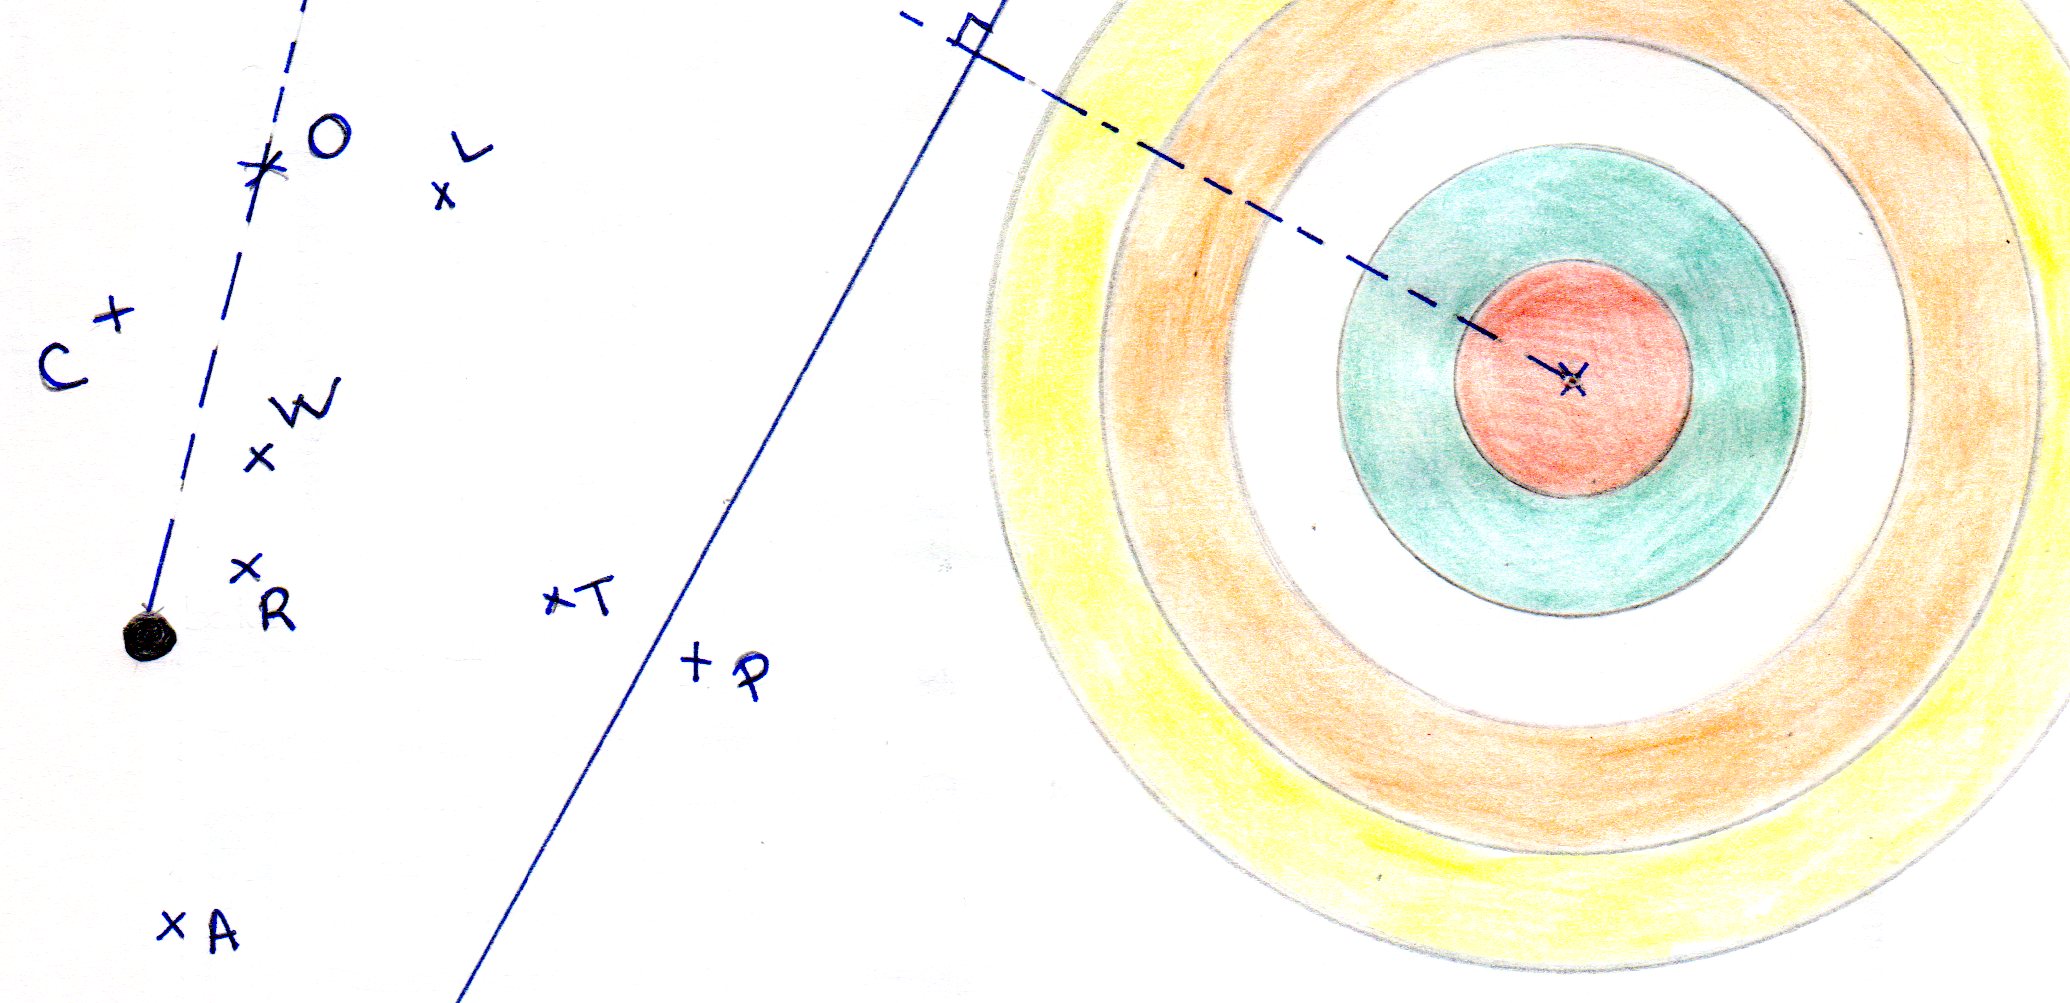 O
L
C
W
R
T
P
A